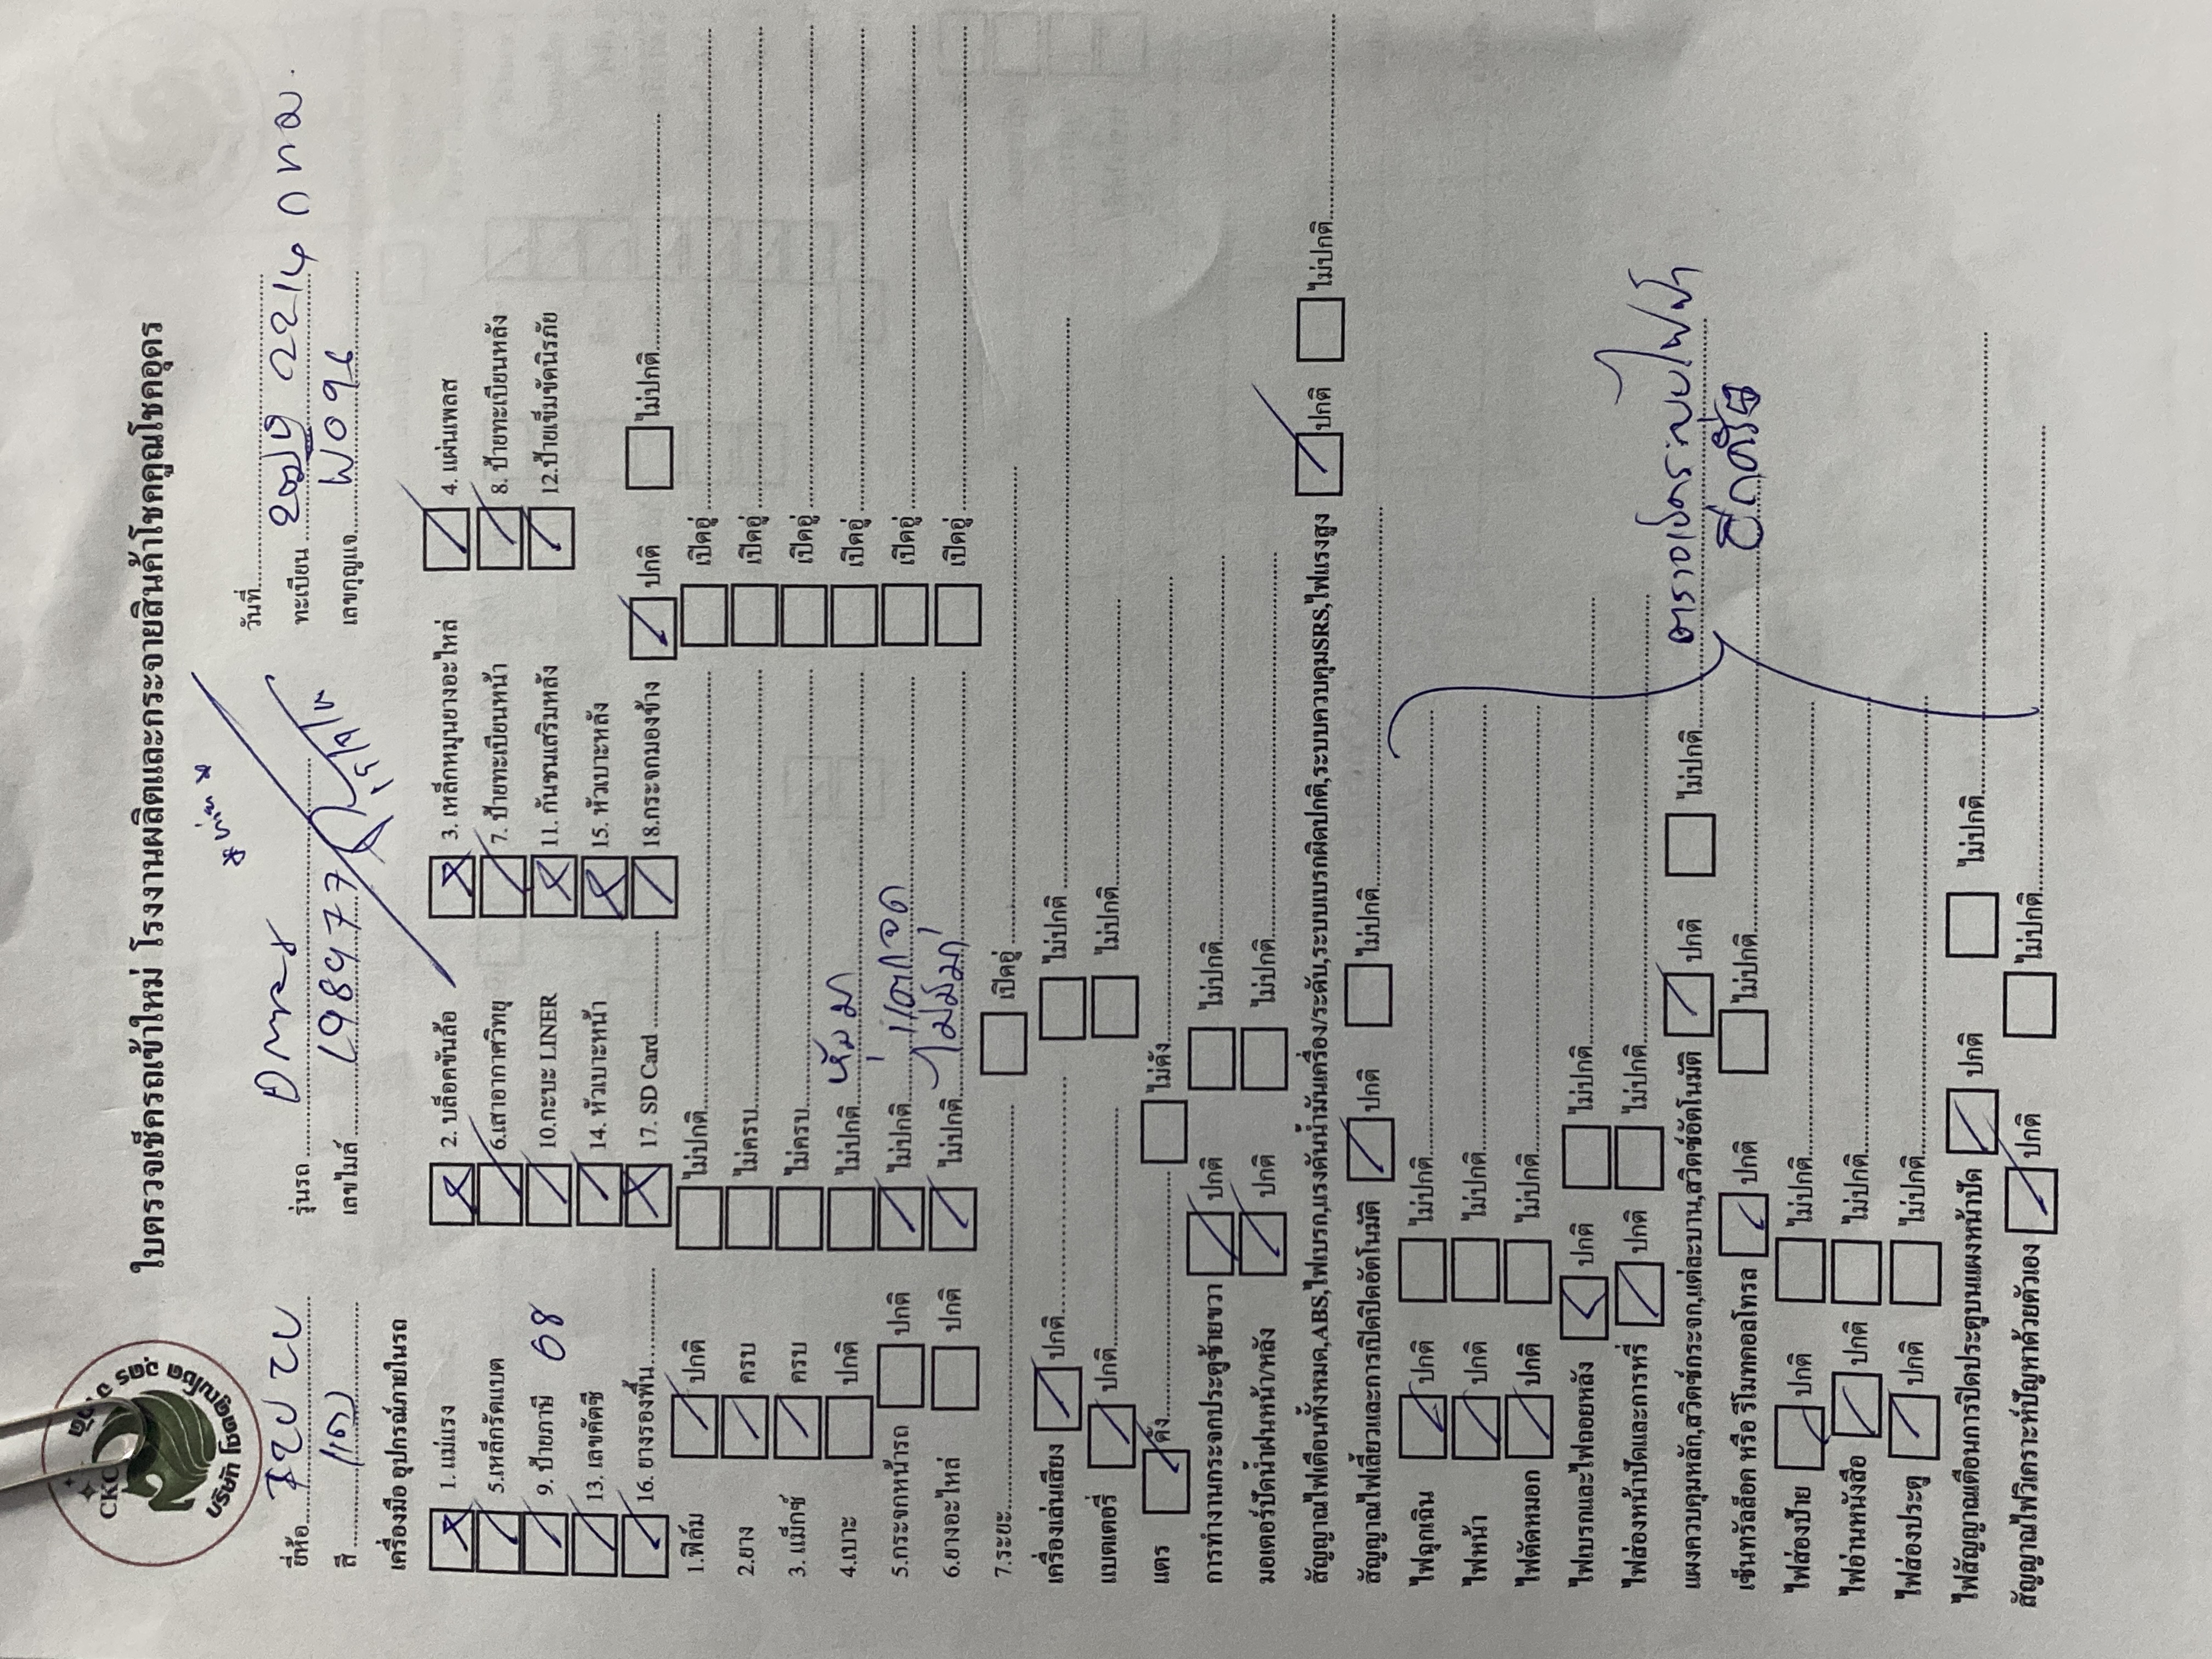 ใบตรวจเช็ครถเข้าใหม่ โรงงานผลิตและกระจายสินค้าโชคคูณโชคอุดร
CKC
บริษัท โชคคูณโชค อุดร จำกัด
ยี่ห้อ รุ่นรถ Dmax วันที่
ทะเบียน 2214 กทม.
สี แดง เลขไมล์ 198977 เลขกุญแจ W096
เครื่องมือ อุปกรณ์ภายในรถ
1. แม่แรง 2. บล็อคขันล้อ 3. เหล็กหมุนยางอะไหล่ 4. แผ่นเพลส
5.เหล็กรัดแบต 6.เสาอากาศวิทยุ 7. ป้ายทะเบียนหน้า 8. ป้ายทะเบียนหลัง
9. ป้ายภาษี 68 10.กะบะ LINER 11. กันชนเสริมหลัง 12.ป้ายเข็มขัดนิรภัย
13. เลขคัตซี 14. หัวเบาะหน้า 15. หัวเบาะหลัง
16. ยางรองพื้น 17. SD Card 18.กระจกมองข้าง ปกติ ไม่ปกติ
1.ฟิล์ม ปกติ ไม่ปกติ เปิดอู่
2.ยาง ครบ ไม่ครบ เปิดอู่
3. แม็กซ์ ครบ ไม่ครบ เปิดอู่
4.เบาะ ปกติ ไม่ปกติ หุ้มมา เปิดอู่
5.กระจกหน้ารถ ปกติ ไม่ปกติ แตก เปิดอู่
6.ยางอะไหล่ ปกติ ไม่ปกติ ไม่มีมา เปิดอู่
7.ระยะ เปิดอู่
เครื่องเล่นเสียง ปกติ ไม่ปกติ
แบตเตอรี่ ปกติ ไม่ปกติ
แตร ดัง ไม่ดัง
การทำงานกระจกประตูซ้ายขวา ปกติ ไม่ปกติ
มอเตอร์ปัดน้ำฝนหน้า/หลัง ปกติ ไม่ปกติ
สัญญาณไฟเตือนทั้งหมด,ABS,ไฟเบรก,แรงดันน้ำมันเครื่อง/ระดับ,ระบบเบรกผิดปกติ,ระบบควบคุมSRS,ไฟแรงสูง ปกติ ไม่ปกติ
สัญญาณไฟเลี้ยวและการเปิดปิดอัตโนมัติ ปกติ ไม่ปกติ
ไฟฉุกเฉิน ปกติ ไม่ปกติ
ไฟหน้า ปกติ ไม่ปกติ
ไฟตัดหมอก ปกติ ไม่ปกติ
ไฟเบรกและไฟถอยหลัง ปกติ ไม่ปกติ
ไฟส่องหน้าปัดและการหรี่ ปกติ ไม่ปกติ
แผงควบคุมหลัก,สวิตซ์กระจก,แต่ละบาน,สวิตซ์อัตโนมัติ ปกติ ไม่ปกติ
ตรวจเช็คระบบไฟฟ้า
เซ็นทรัลล็อค หรือ รีโมทคอลโทรล ปกติ ไม่ปกติ
อีกครั้ง
ไฟส่องป้าย ปกติ ไม่ปกติ
ไฟอ่านหนังสือ ปกติ ไม่ปกติ
ไฟส่องประตู ปกติ ไม่ปกติ
ไฟสัญญาณเตือนการปิดประตูบนแผงหน้าปัด ปกติ ไม่ปกติ
สัญญาณไฟวิเคราะห์ปัญหาด้วยตัวเอง ปกติ ไม่ปกติ